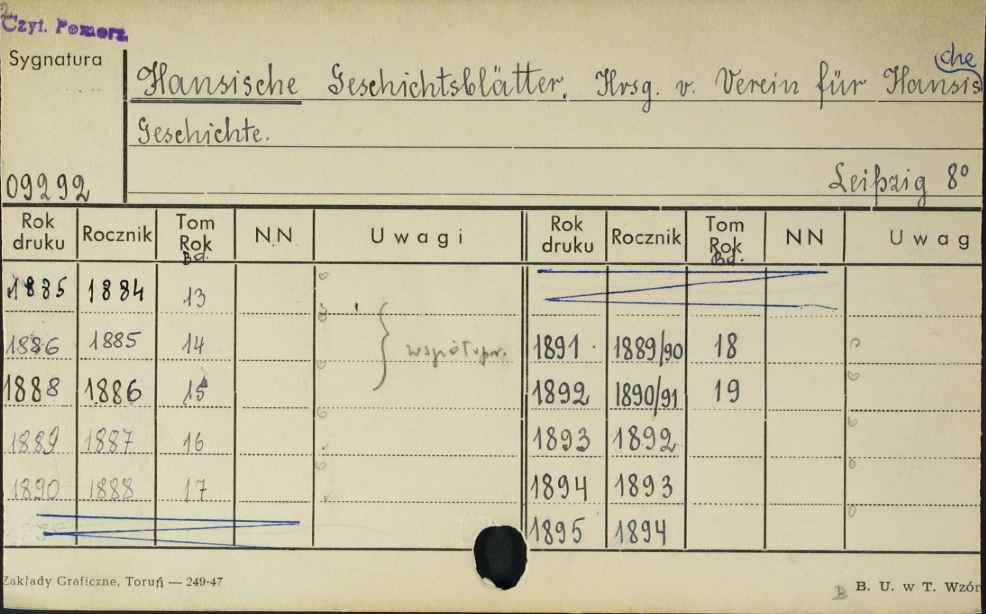 Czyt. Pomorz.
Sygnatura
che
Hansische Geschichtsblätter. Hrsg. v. Verein für Hansis
Geschichte.
09292
Leipzig 8°
Rok druku Rocznik Tom Rok Bd. NN Uwagi Rok druku Rocznik Tom Rok Bd. NN Uwag
1885 1884 13
1886 1885 14 współopr. 1891 1889/90 18
1888 1886 15 1892 1890/91 19
1889 1887 16 1893 1892
1890 1888 17 1894 1893
1895 1894
Zakłady Graficzne, Toruń — 249-47
B. U. w T. Wzór